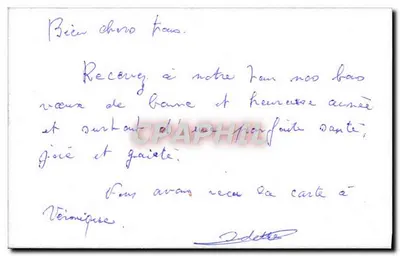 Bien chers tous.
Recevez à notre tour nos bons
vœux de bonne et heureuse année
et surtout d'une parfaite santé,
joie et gaieté.
Nous avons reçu la carte à
Véronique.